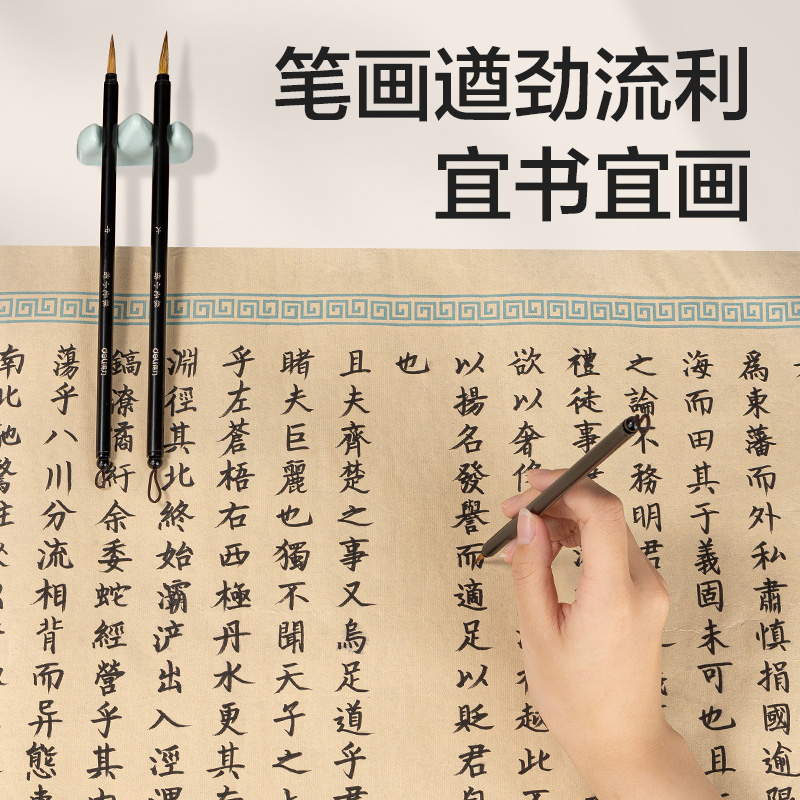 笔画遒劲流利
宜书宜画
大
中
爲東藩而外私肅慎捐國逾
海而田其于義固未可也且
之論不務明君
禮徒事
欲以奢
越此
以揚名發譽而適足以貶君
也
且夫齊楚之事又烏足道乎
睹夫巨麗也獨不聞天子之
乎左蒼梧右西極丹水更其
淵徑其北終始灞滻出入涇
鎬潦潏紆余委蛇經營乎其
蕩乎八川分流相背而异態
南北馳騖